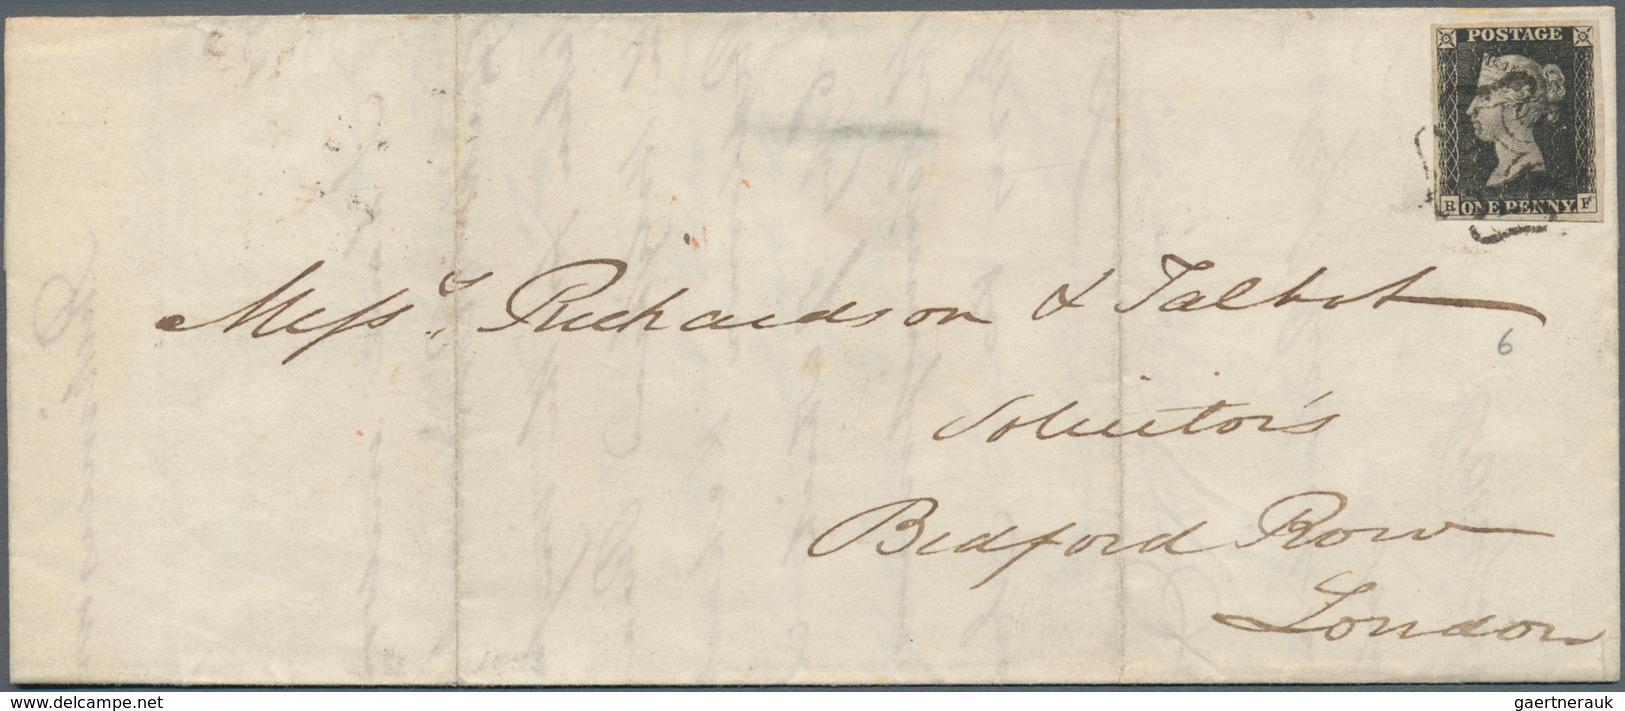 POSTAGE
R ONE PENNY. F
Messrs. Richardson & Talbot
6
Solicitor's
Bedford Row
London
gaertnerauk